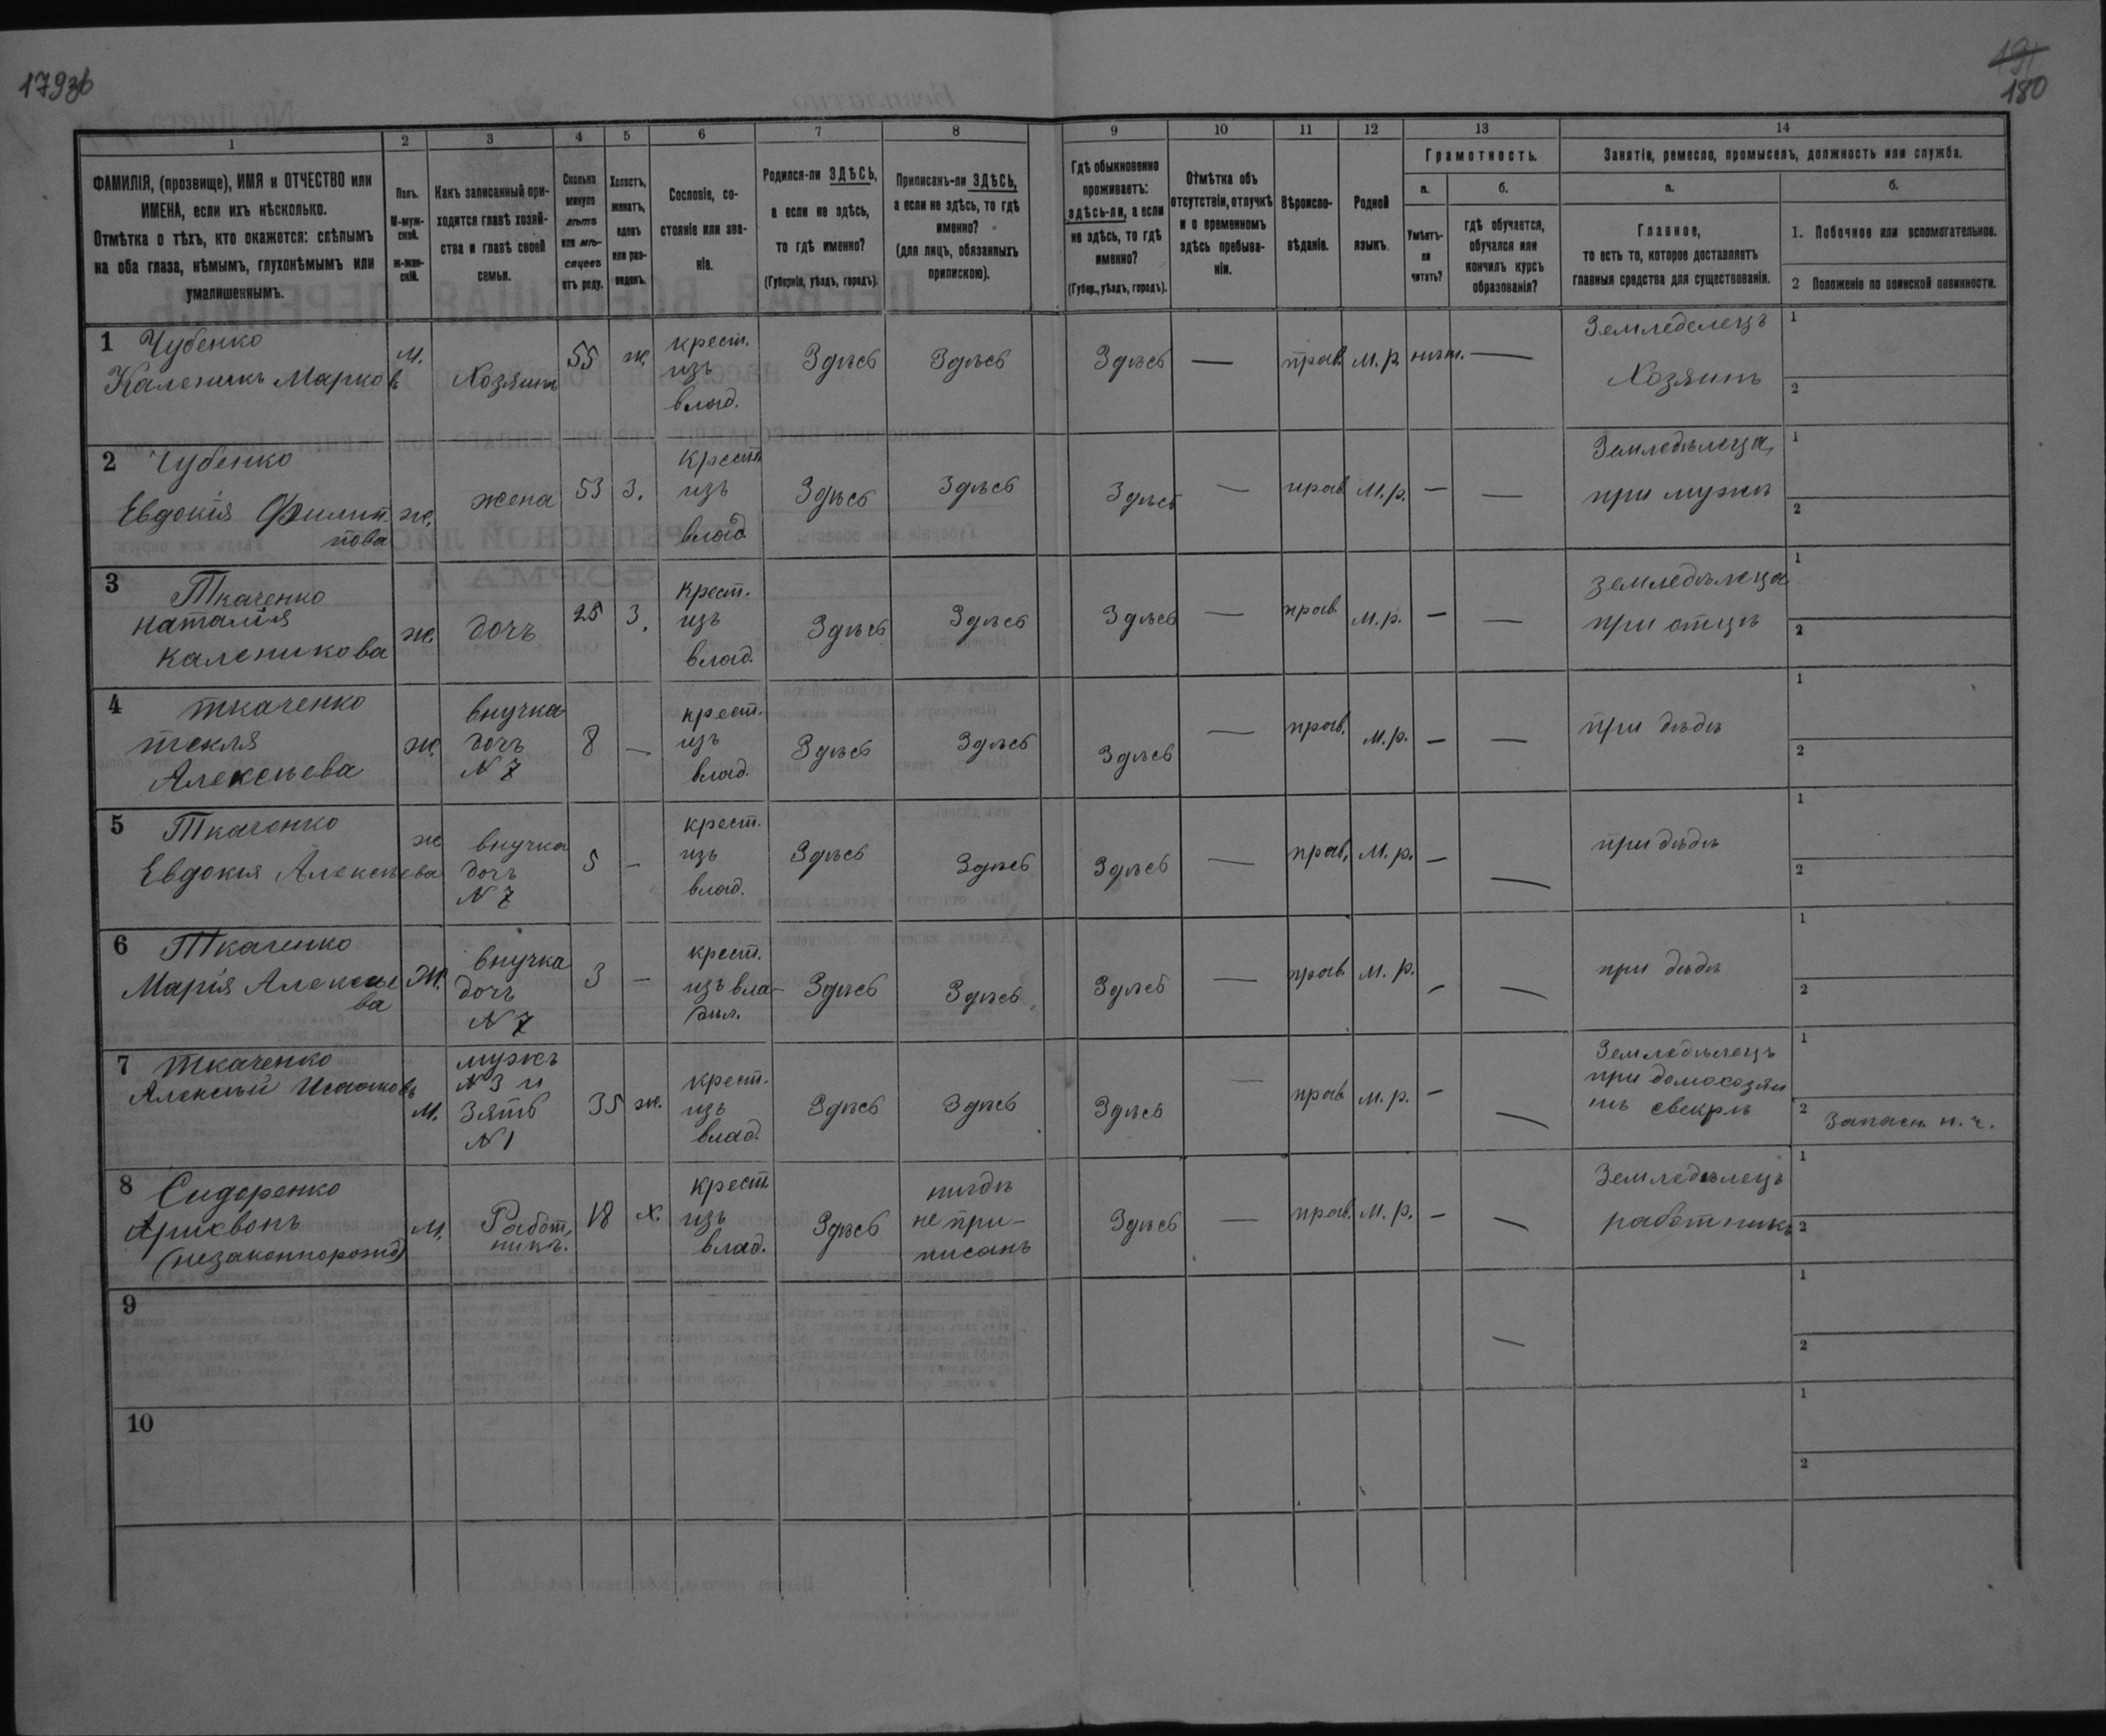 179зв
191
180
1 2 3 4 5 6 7 8 9 10 11 12 13 14
ФАМИЛІЯ, (прозвище), ИМЯ и ОТЧЕСТВО или
ИМЕНА, если ихъ нѣсколько.
Отмѣтка о тѣхъ, кто окажется: слѣпымъ
на оба глаза, нѣмымъ, глухонѣмымъ или
умалишеннымъ.
Полъ.
М-муж-
ской.
Ж-жен-
скій.
Какъ записанный при-
ходится главѣ хозяй-
ства и главѣ своей
семьи.
Сколько
минуло
лѣтъ
или мѣ-
сяцевъ
отъ роду.
Холостъ,
женатъ,
вдовъ
или раз-
веденъ.
Сословіе, со-
стояніе или зва-
ніе.
Родился-ли ЗДѢСЬ,
а если не здѣсь,
то гдѣ именно?
(Губернія, уѣздъ, городъ).
Приписанъ-ли ЗДѢСЬ,
а если не здѣсь, то гдѣ
именно?
(для лицъ, обязанныхъ
припискою).
Гдѣ обыкновенно
проживаетъ:
здѣсь-ли, а если
не здѣсь, то гдѣ
именно?
(Губер., уѣздъ, городъ).
Отмѣтка объ
отсутствіи, отлучкѣ
и о временномъ
здѣсь пребыва-
ніи.
Вѣроиспо-
вѣданіе.
Родной
языкъ.
Грамотность.
а.
Умѣетъ-
ли
читать?
б.
гдѣ обучается,
обучался или
кончилъ курсъ
образованія?
Занятіе, ремесло, промыселъ, должность или служба.
а.
Главное,
то есть то, которое доставляетъ
главныя средства для существованія.
б.
1. Побочное или вспомогательное.
2 Положеніе по воинской повинности.
1 Чубенко
Каленикъ Марковъ
м.
Хозяинъ
55
ж.
крест.
изъ
влад.
Здѣсь
Здѣсь
Здѣсь
—
прав.
м.р.
—
Земледелецъ
Хозяинъ
1
2
2 Чубенко
Евдокія Филип
пова
ж.
жена
53
З.
крест.
изъ
влад.
Здѣсь
Здѣсь
Здѣсь
—
прав.
м.р.
—
—
Земледѣлеца,
при мужѣ
1
2
3 Ткаченко
Наталія
Каленикова
ж.
дочь
25
З.
крест.
изъ
влад.
Здѣсь
Здѣсь
Здѣсь
—
прав.
м.р.
—
—
земледѣлеца
при отцѣ
1
2
4 Ткаченко
Текля
Алексѣева
ж.
внучка
дочь
№ 7
8
—
крест.
изъ
влад.
Здѣсь
Здѣсь
Здѣсь
—
прав.
м.р.
—
—
при дѣдѣ
1
2
5 Ткаченко
Евдокия Алексѣева
ж
внучка
дочь
№ 7
5
—
крест.
изъ
влад.
Здѣсь
Здѣсь
Здѣсь
—
прав.
м.р.
—
—
при дѣдѣ
1
2
6 Ткаченко
Марія Алексѣе
ва
Ж.
внучка
дочь
№ 7
3
—
крест.
изъ вла-
дил.
Здѣсь
Здѣсь
Здѣсь
—
прав.
м. р.
—
—
при дѣдѣ
1
2
7 Ткаченко
Алексѣй Исааковъ
м.
мужъ
№ 3 и
Зять
№ 1
35
ж.
крест.
изъ
влад.
Здѣсь
Здѣсь
Здѣсь
—
прав
м.р.
—
—
Земледѣлецъ
при домохозяи
нѣ свекрѣ
1
2 Запасн. н. ч.
8 Сидоренко
Арихвонъ
(незаконнорожд)
м.
Работ,
никъ.
18
х.
крест.
изъ
влад.
Здѣсь
нигдѣ
не при-
писанъ
Здѣсь
—
прав.
м. р.
—
—
Земледѣлецъ
работникъ
1
2
9
—
1
2
10
1
2